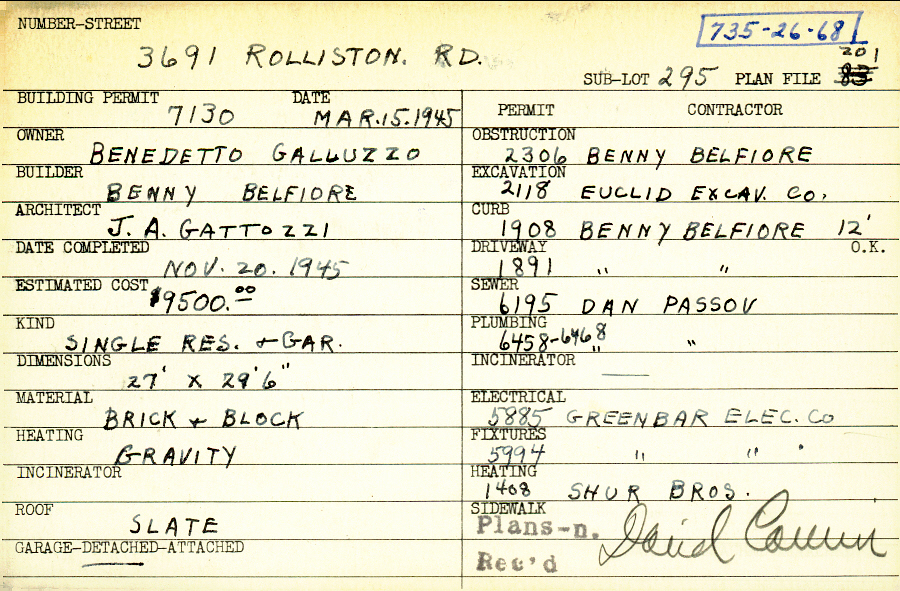 NUMBER-STREET
735-26-68
3691 ROLLISTON. RD.
201
SUB-LOT 295 PLAN FILE 83
BUILDING PERMIT 7130 DATE MAR.15.1945
PERMIT CONTRACTOR
OWNER BENEDETTO GALLUZZO
OBSTRUCTION 2306 BENNY BELFIORE
BUILDER BENNY BELFIORE
EXCAVATION 2118 EUCLID EXCAV. CO.
ARCHITECT J. A. GATTOZZI
CURB 1908 BENNY BELFIORE 12'
DATE COMPLETED NOV. 20. 1945
DRIVEWAY 1891 " " O.K.
ESTIMATED COST $9500.00
SEWER 6195 DAN PASSOV
KIND SINGLE RES. + GAR.
PLUMBING 6458-6468 " "
DIMENSIONS 27' X 29'6"
INCINERATOR —
MATERIAL BRICK + BLOCK
ELECTRICAL 5885 GREENBAR ELEC. CO
HEATING GRAVITY
FIXTURES 5994 " " "
INCINERATOR
HEATING 1408 SHUR BROS.
ROOF SLATE
SIDEWALK
Plans-n. David
GARAGE-DETACHED-ATTACHED
Rec'd